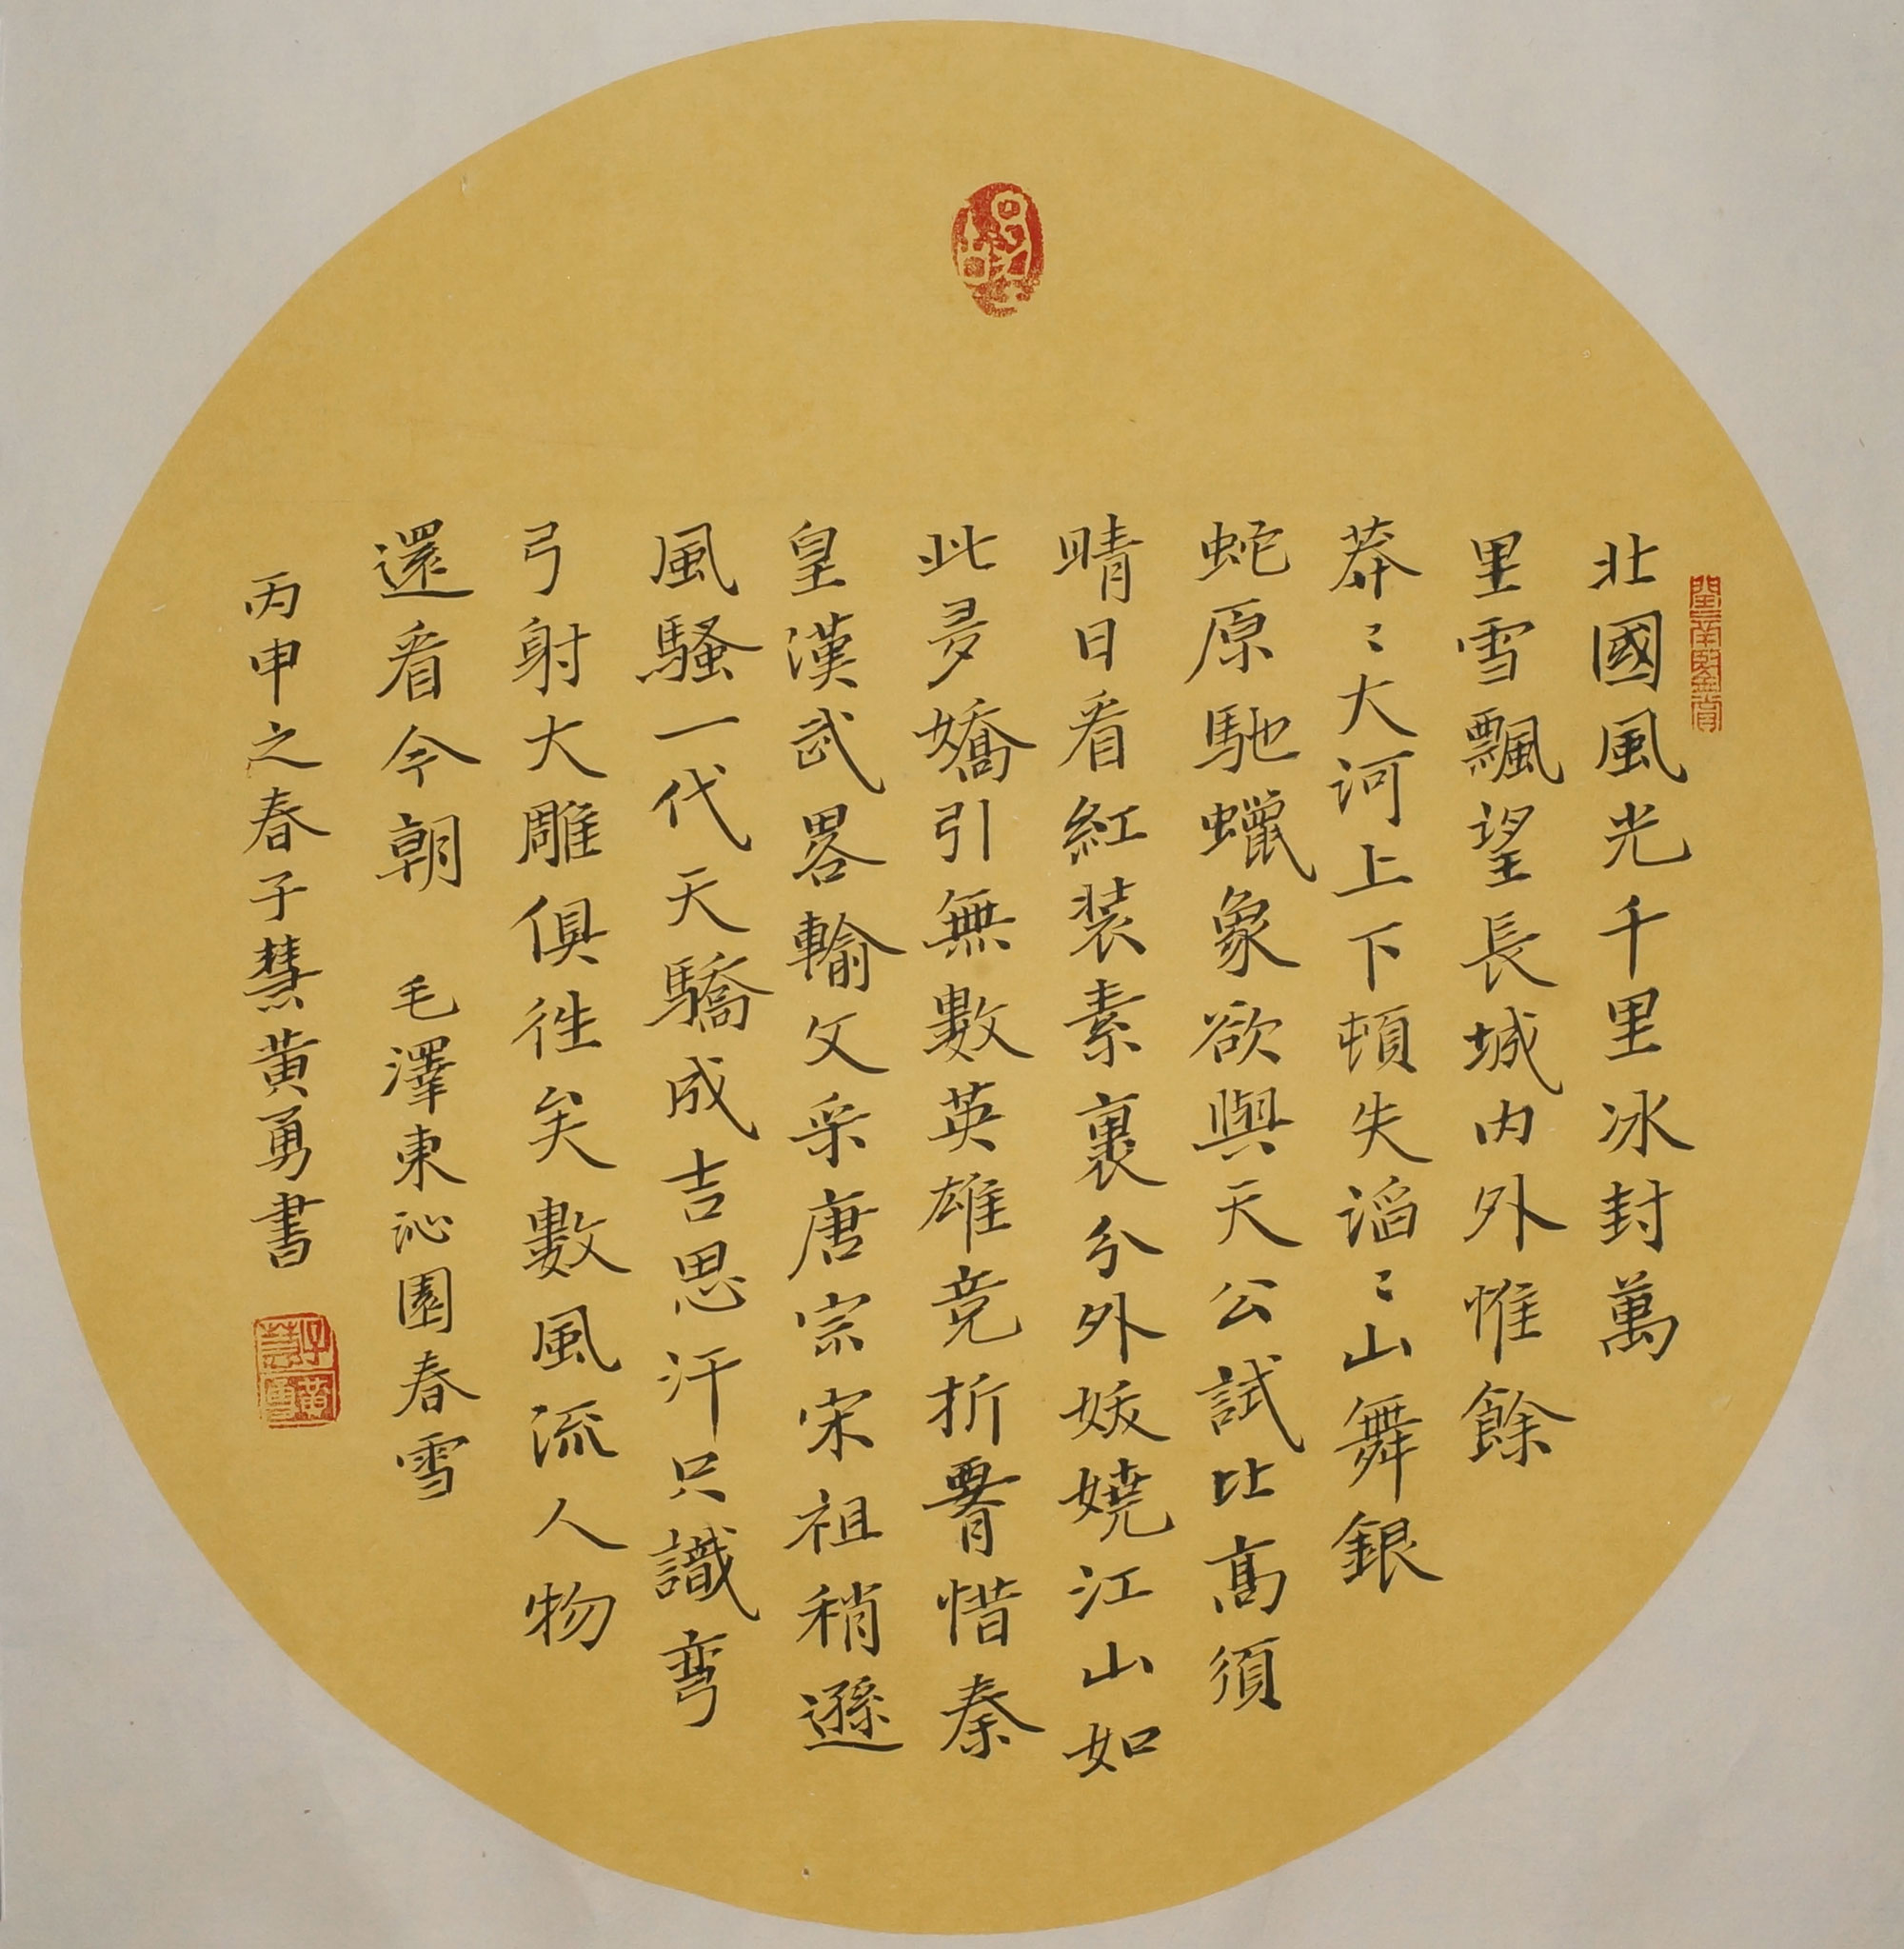 北國風光千里冰封萬
里雪飄望長城内外惟餘
莽〻大河上下頓失滔〻山舞銀
蛇原馳蠟象欲與天公試比高須
晴日看紅装素裹分外妖嬈江山如
此多嬌引無數英雄竞折署惜秦
皇漢武畧輸文采唐宗宋祖稍遜
風騷一代天驕成吉思汗只識弯
弓射大雕俱往矣數風流人物
還看今朝 毛澤東沁園春雪
丙申之春子慧黄勇書
子慧黄勇